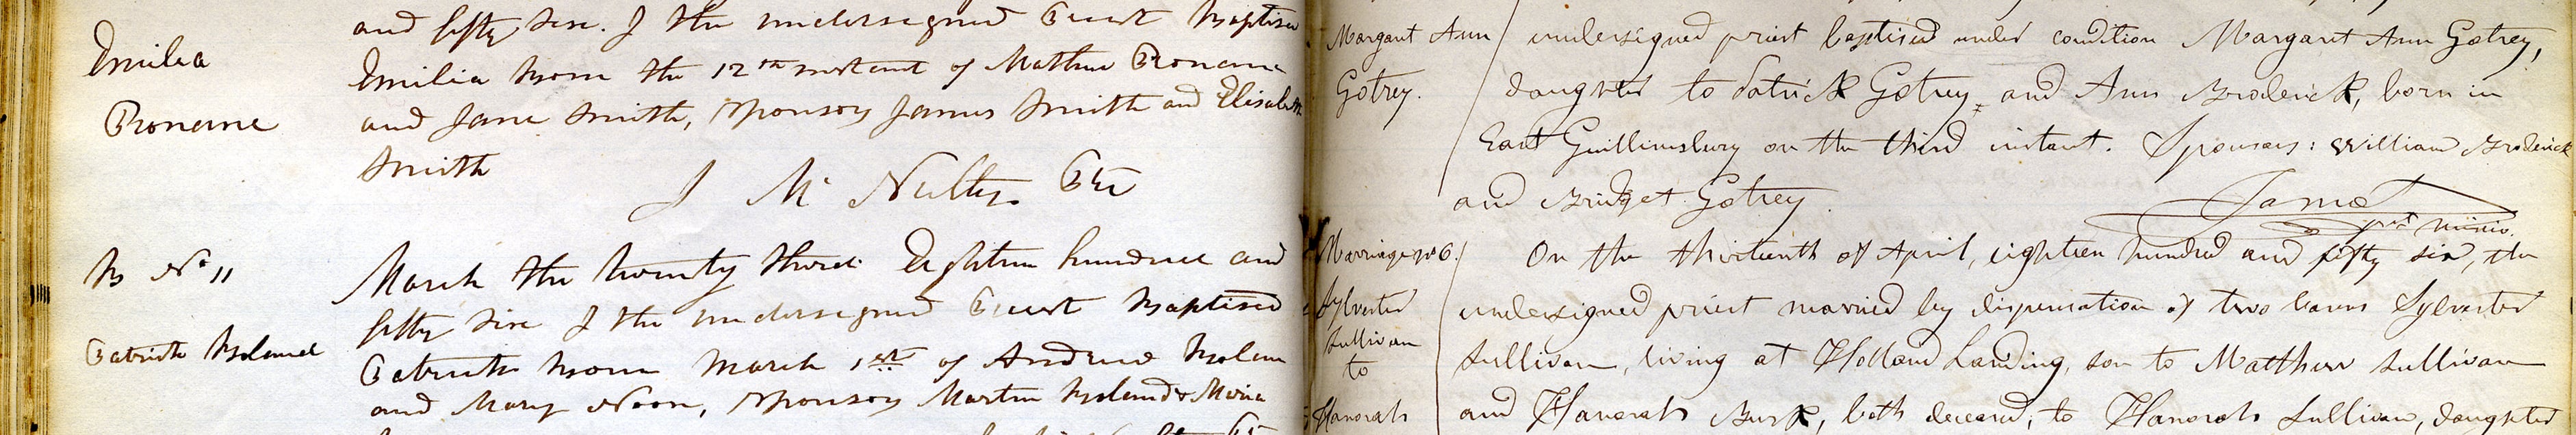 and fifty sixe. I the undersigned Priest Baptised
Emilia
Emilia Born the 12th instant of Mathew Pronane
Pronane
and Jane Smith, sponsors James Smith and Elisabeth
Smith
J Mc Nulty Pst
B No 11
March the twenty third Eighteen hundred and
fifty sixe I the undersigned Priest Baptised
Patrick Boland
Patrick Born March 1st of Andrew Bolan
and Mary Noon, sponsors Martin Boland & Maria
Margaret Ann
undersigned priest baptised under condition Margaret Ann Gotrey,
Gotrey.
daughter to Patrick Gotrey and Ann Broderick, born in
East Guillimsbury on the third instant. Sponsors: William Broderick
and Bridget Gotrey.
Jamot
prst missio.
Marriage No 6.
On the thirteenth of April, eighteen hundred and fifty six, the
Sylvester
undersigned priest married by dispensation of two banns Sylvester
Sullivan
Sullivan, living at Holland Landing, son to Matthew Sullivan
to
Hanorah
and Hanorah Burk, both deceased, to Hanorah Sullivan, daughter